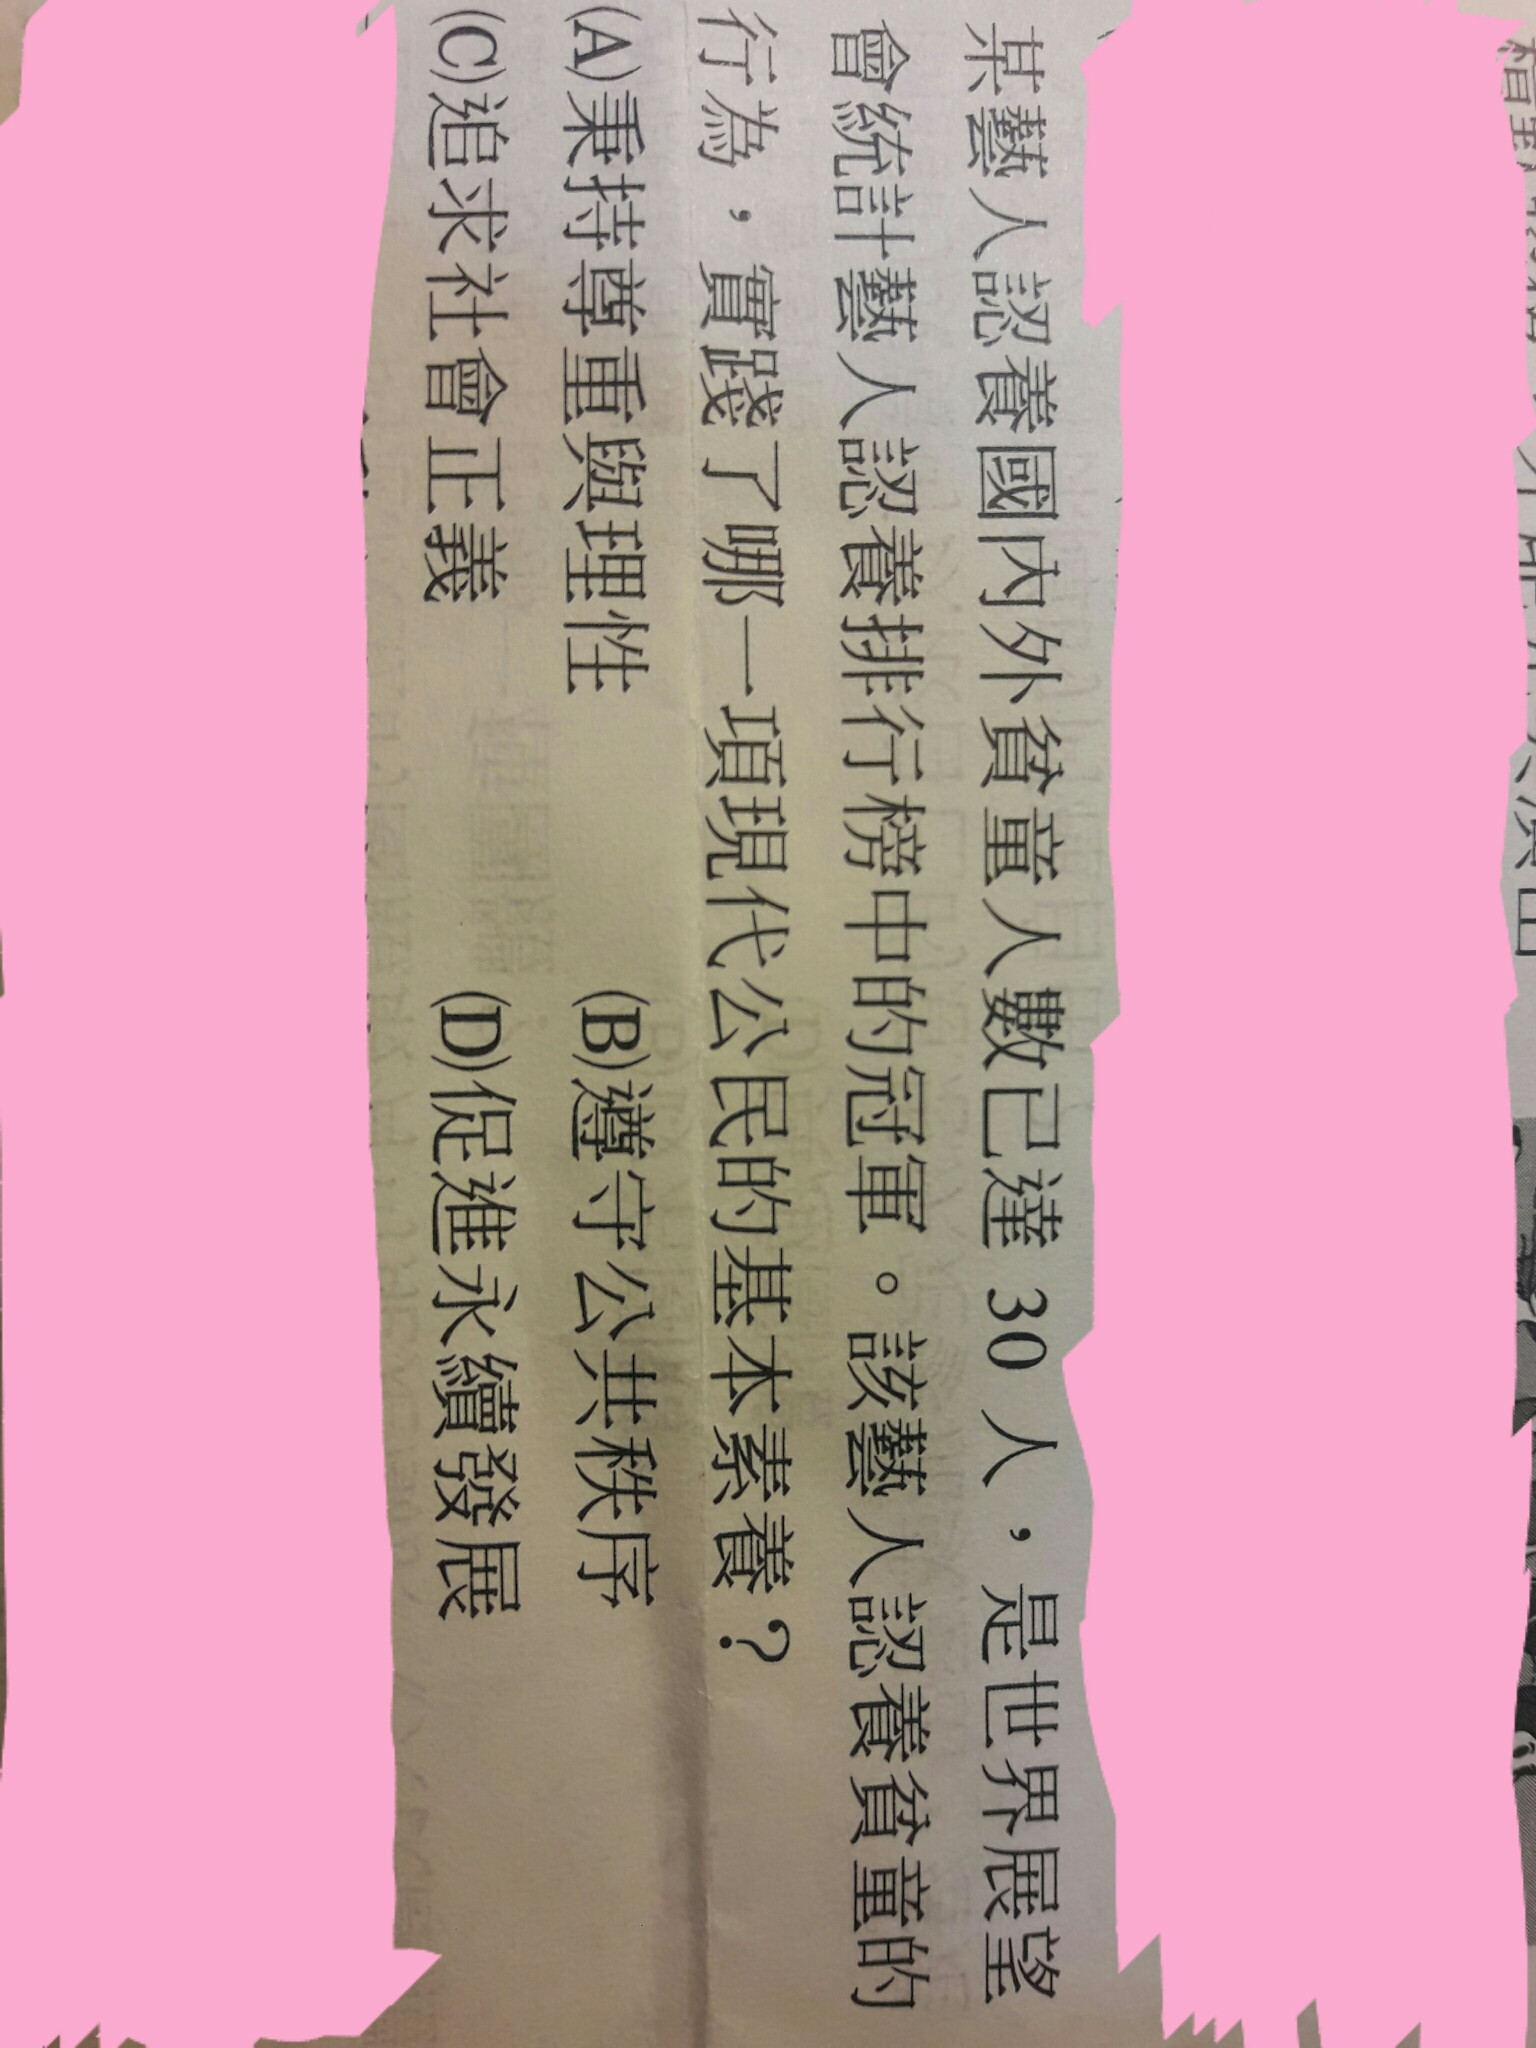 某藝人認養國內外貧童人數已達 30 人，是世界展望
會統計藝人認養排行榜中的冠軍。該藝人認養貧童的
行為，實踐了哪一項現代公民的基本素養？
(A)秉持尊重與理性 (B)遵守公共秩序
(C)追求社會正義 (D)促進永續發展